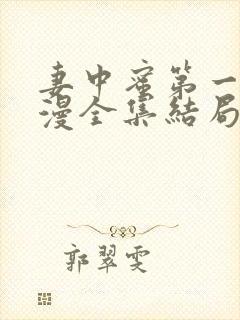 妻中蜜第一
漫全集結局
郭翠雯